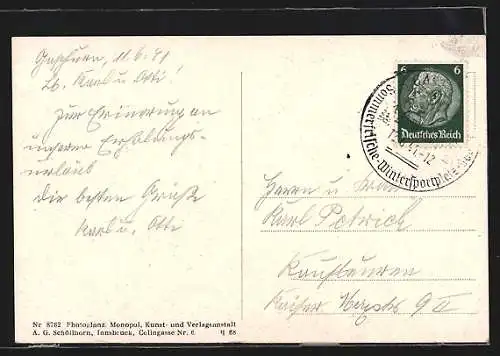 Gaschurn, 11.6.41
Lb. Karl u. Otti!
Zur Erinnerung an
unseren Erholungs-
urlaub
die besten Grüße
Karl u. Otti
6 6
Deutsches Reich
Sommerfrische-Wintersportplatz
Herrn u. Frau
Karl Petrich
Kaufbeuren
Kaiser
9 II
Nr 8762 Photoglanz. Monopol, Kunst- und Verlagsanstalt
A. G. Schöllhorn, Innsbruck, Colingasse Nr. 6